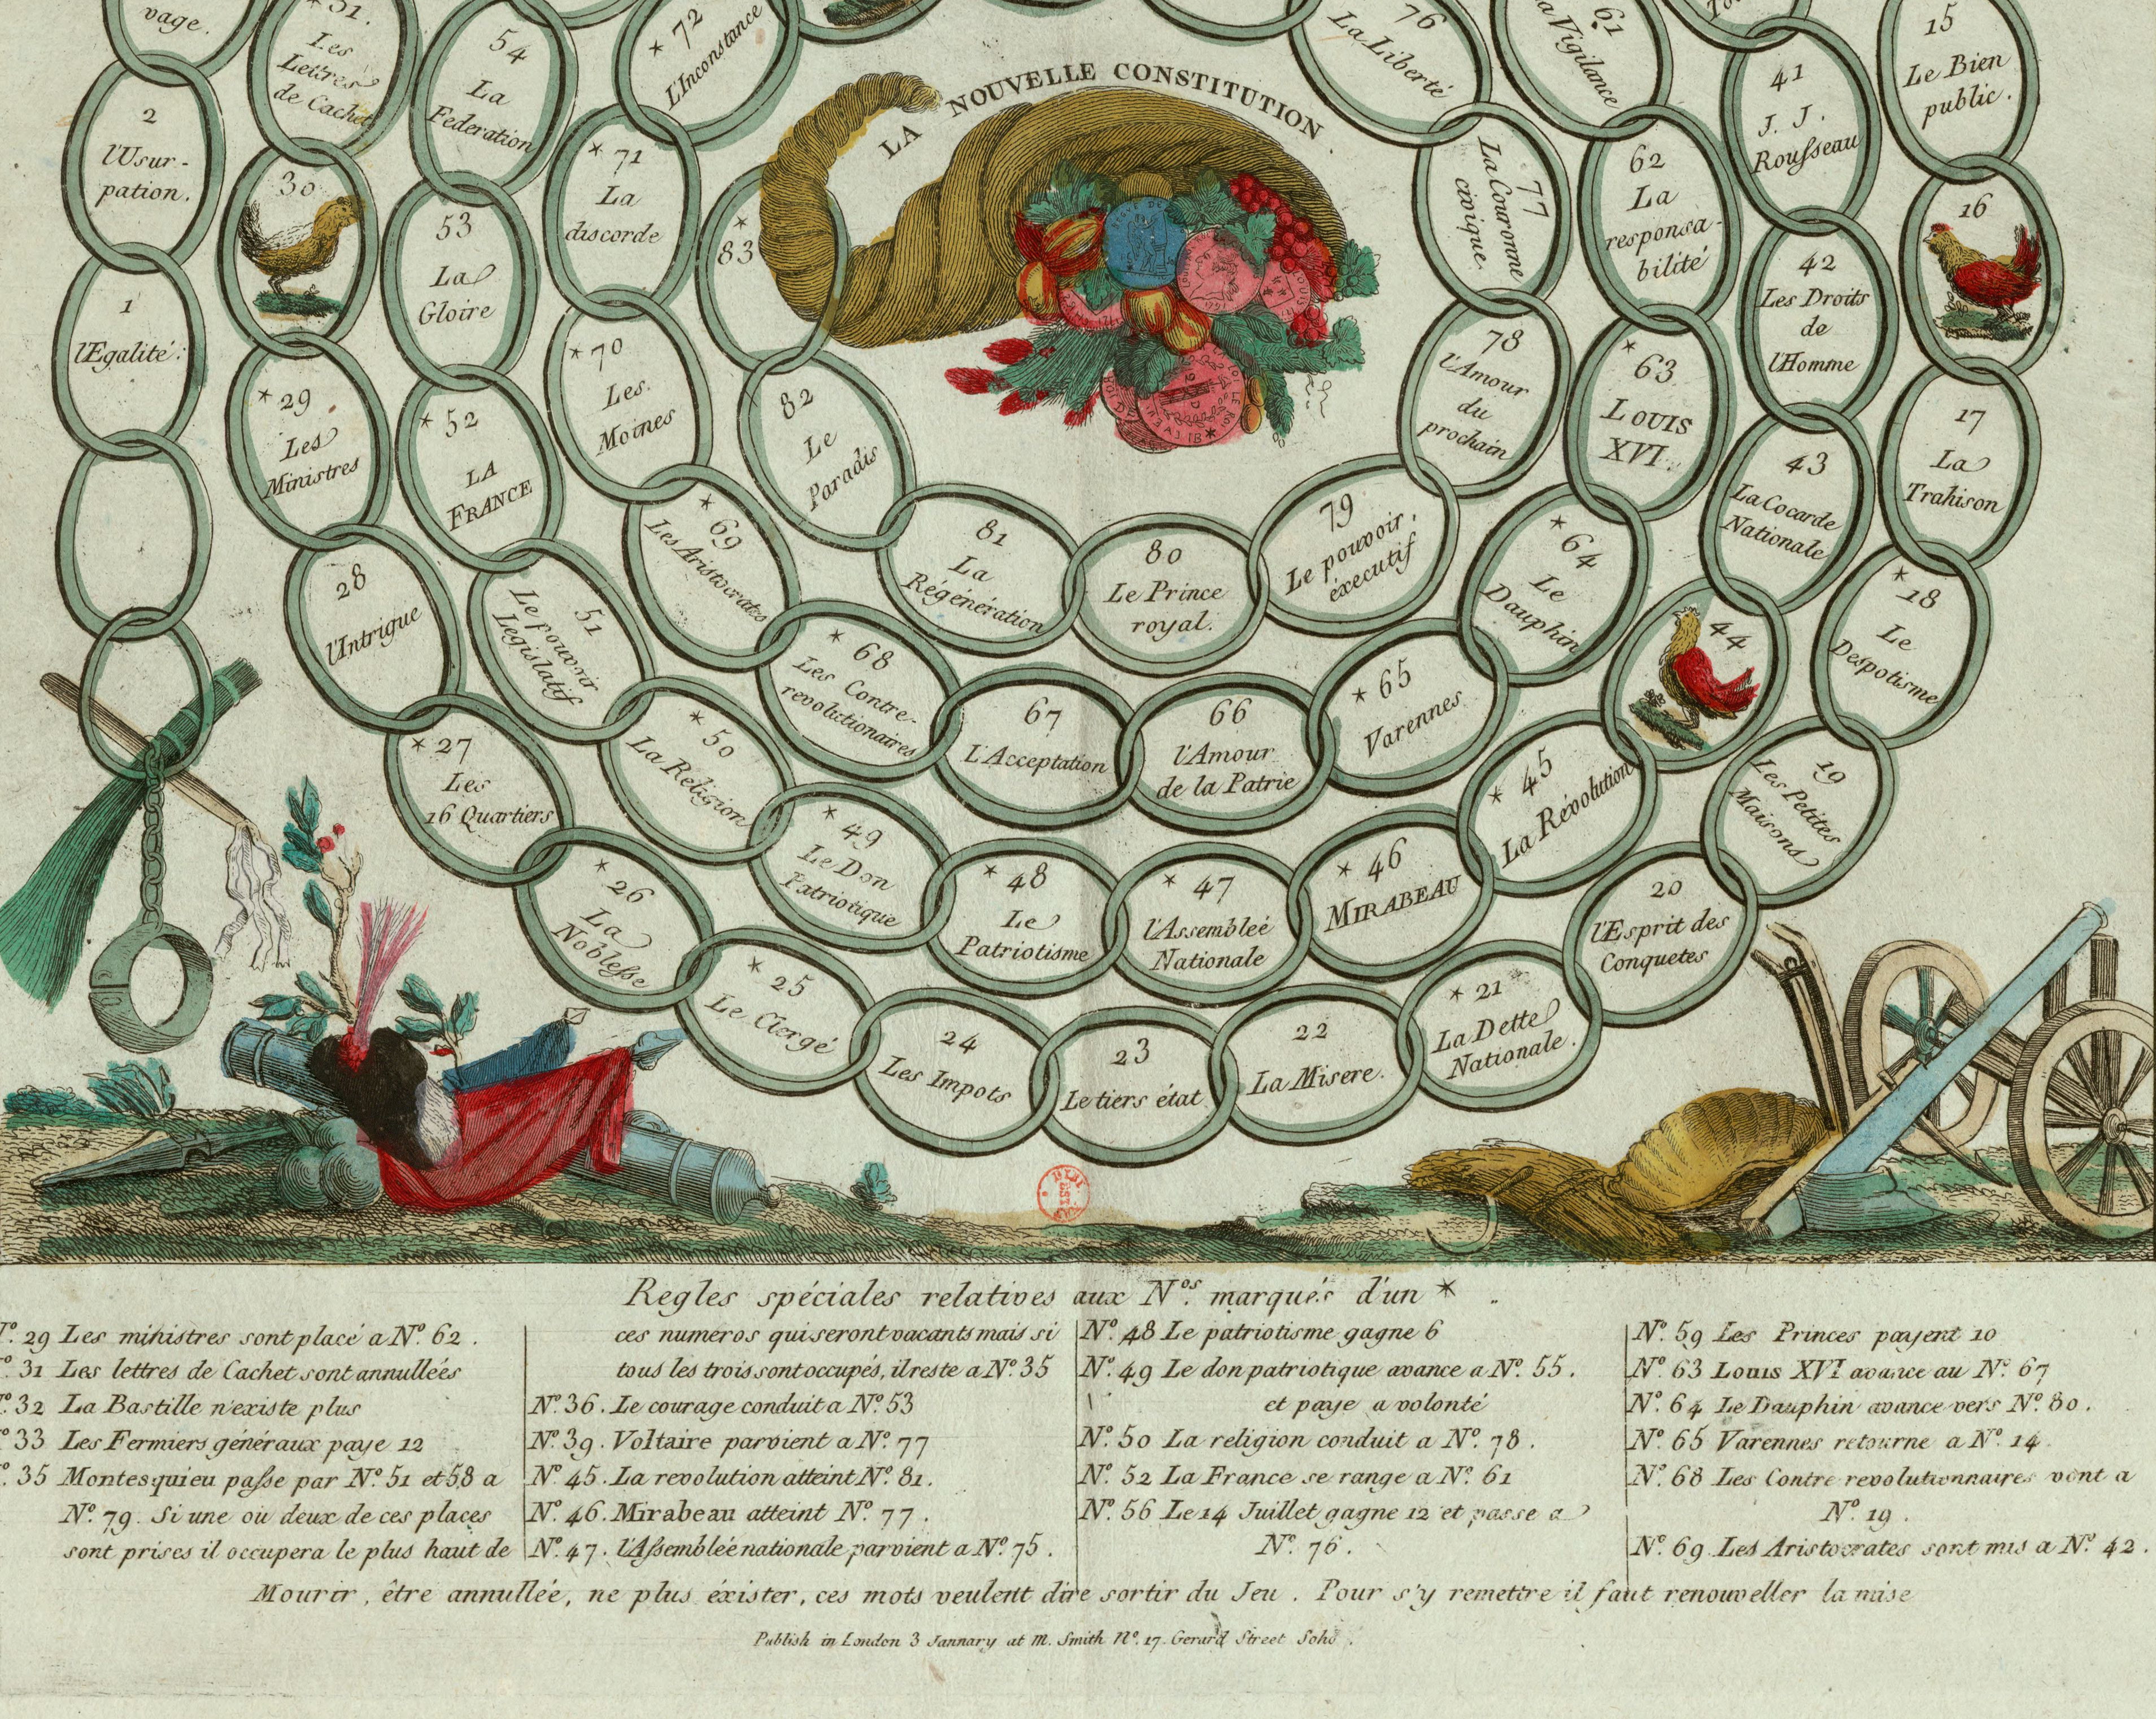 vage.
2
l'Usur-
pation.
1
l'Egalité.
31.
Les
Lettres
de Cachet
54
La
Federation
* 72
L'Inconstance
30
53
La
Gloire
* 71
La
discorde
*
83
* 29
Les
Ministres
* 52
LA
FRANCE
* 70
Les
Moines
82
Le
Paradis
28
l'Intrigue
51
Le pouvoir
Legislatif
* 69
Les Aristocrates
81
La
Régénération
80
Le Prince
royal.
79
Le pouvoir
éxecutif
78
l'Amour
du
prochain
77
La Couronne
civique
76
La Liberté
LA NOUVELLE CONSTITUTION
61
La Vigilance
62
La
responsa-
bilité
* 63
LOUIS
XVI.
* 64
Le
Dauphin
* 65
Varennes
66
l'Amour
de la Patrie
67
L'Acceptation
* 68
Les Contre-
revolutionaires
41
J. J.
Rousseau
42
Les Droits
de
l'Homme
43
La Cocarde
Nationale
44
* 45
La Révolution
* 46
MIRABEAU
* 47
l'Assembleé
Nationale
* 48
Le
Patriotisme
* 49
Le Don
Patriotique
* 50
La Religion
15
Le Bien
public.
16
17
La
Trahison
* 18
Le
Despotisme
19
Les Petites
Maisons
20
l'Esprit des
Conquetes
* 21
La Dette
Nationale.
22
La Misere.
23
Le tiers état
24
Les Impots
* 25
Le Clergé
* 26
La
Noblesse
* 27
Les
16 Quartiers
Regles spéciales relatives aux Nos. marqués d'un *
No. 29 Les ministres sont placé a No. 62.
No. 31 Les lettres de Cachet sont annullées
No. 32 La Bastille n'existe plus
No. 33 Les Fermiers généraux paye 12
No. 35 Montesquieu passe par No. 51 et 58 a
No. 79. Si une ou deux de ces places
sont prises il occupera le plus haut de
ces numeros qui seront vacants mais si
tous les trois sont occupés, il reste a No. 35
No. 36. Le courage conduit a No. 53
No. 39. Voltaire parvient a No. 77
No. 45. La revolution atteint No. 81.
No. 46. Mirabeau atteint No. 77.
No. 47. l'Assembleé nationale parvient a No. 75.
No. 48 Le patriotisme gagne 6
No. 49 Le don patriotique avance a No. 55.
et paye a volonté
No. 50 La religion conduit a No. 78.
No. 52 La France se range a No. 61
No. 56 Le 14 Juillet gagne 12 et passe a
No. 76.
No. 59 Les Princes payent 10
No. 63 Louis XVI avance au No. 67
No. 64 Le Dauphin avance vers No. 80.
No. 65 Varennes retourne a No. 14
No. 68 Les Contre revolutionnaires vont a
No. 19.
No. 69 Les Aristocrates sont mis a No. 42.
Mourir, être annullée, ne plus éxister, ces mots veulent dire sortir du Jeu. Pour s'y remettre il faut renouveller la mise
Publish in London 3 Jannary at M. Smith No. 17. Gerard Street Soho.